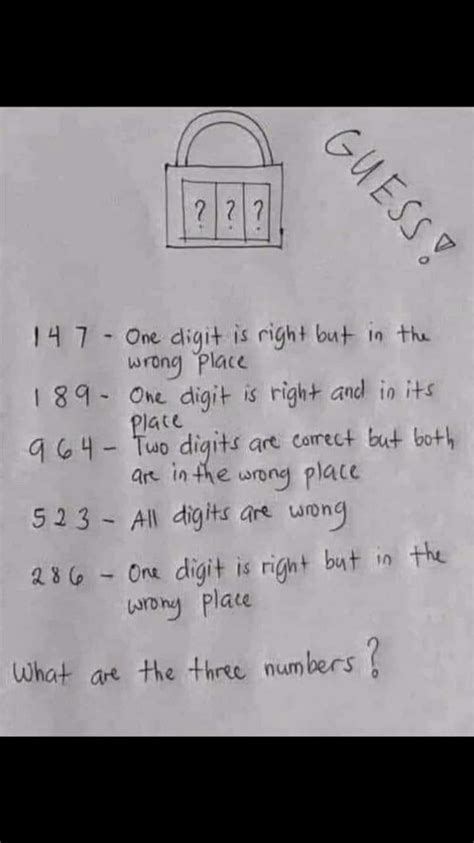 ? ? ?
GUESS!
147 - One digit is right but in the
wrong place
189 - One digit is right and in its
place
964 - Two digits are correct but both
are in the wrong place
523 - All digits are wrong
286 - One digit is right but in the
wrong place
What are the three numbers?